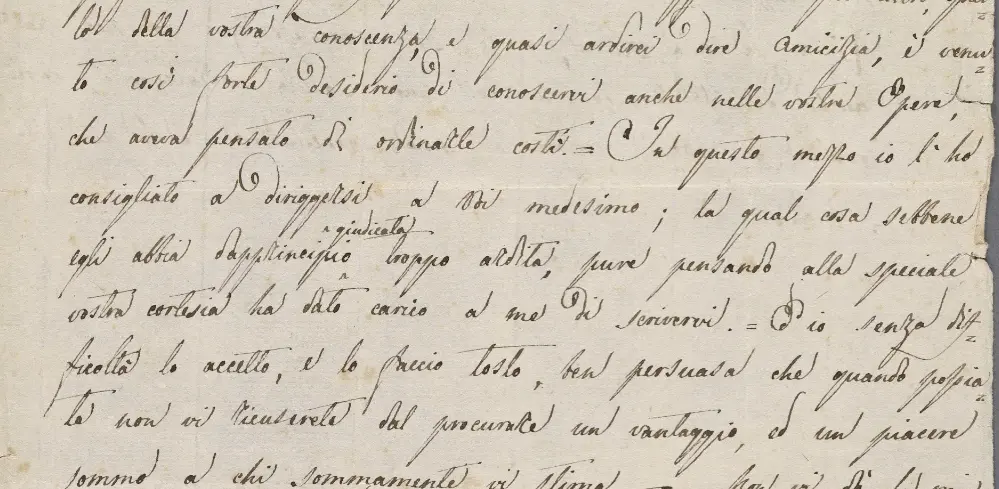 tà della vostra conoscenza, e quasi ardirei dire Amicizia, è venu=
to così forte desiderio di conoscervi anche nelle vostre Opere,
che aveva pensato di ordinarle costì. = In questo mezzo io l'ho
consigliato a diriggersi a Voi medesimo; la qual cosa sebbene
egli abbia dapprincipio giudicata troppo ardita, pure pensando alla speciale
vostra cortesia ha dato carico a me di scrivervi. = Ed io senza dif=
ficoltà lo accetto, e lo faccio tosto, ben persuasa che quando possia=
te non vi ricuserete dal procurare un vantaggio, ed un piacere
sommo a chi sommamente vi stima